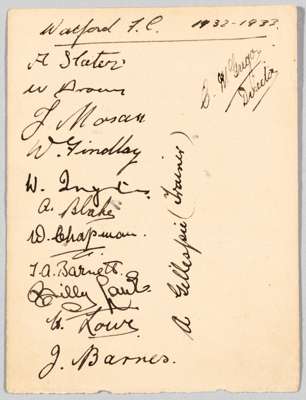 Watford F.C. 1932-1933.
A Slater
W Brown
J Moran
W. Findlay
W.
A. Blake
W. Chapman.
T. A. Barnett
Billy
Lowe
J. Barnes.
A Gillespie (Trainer)